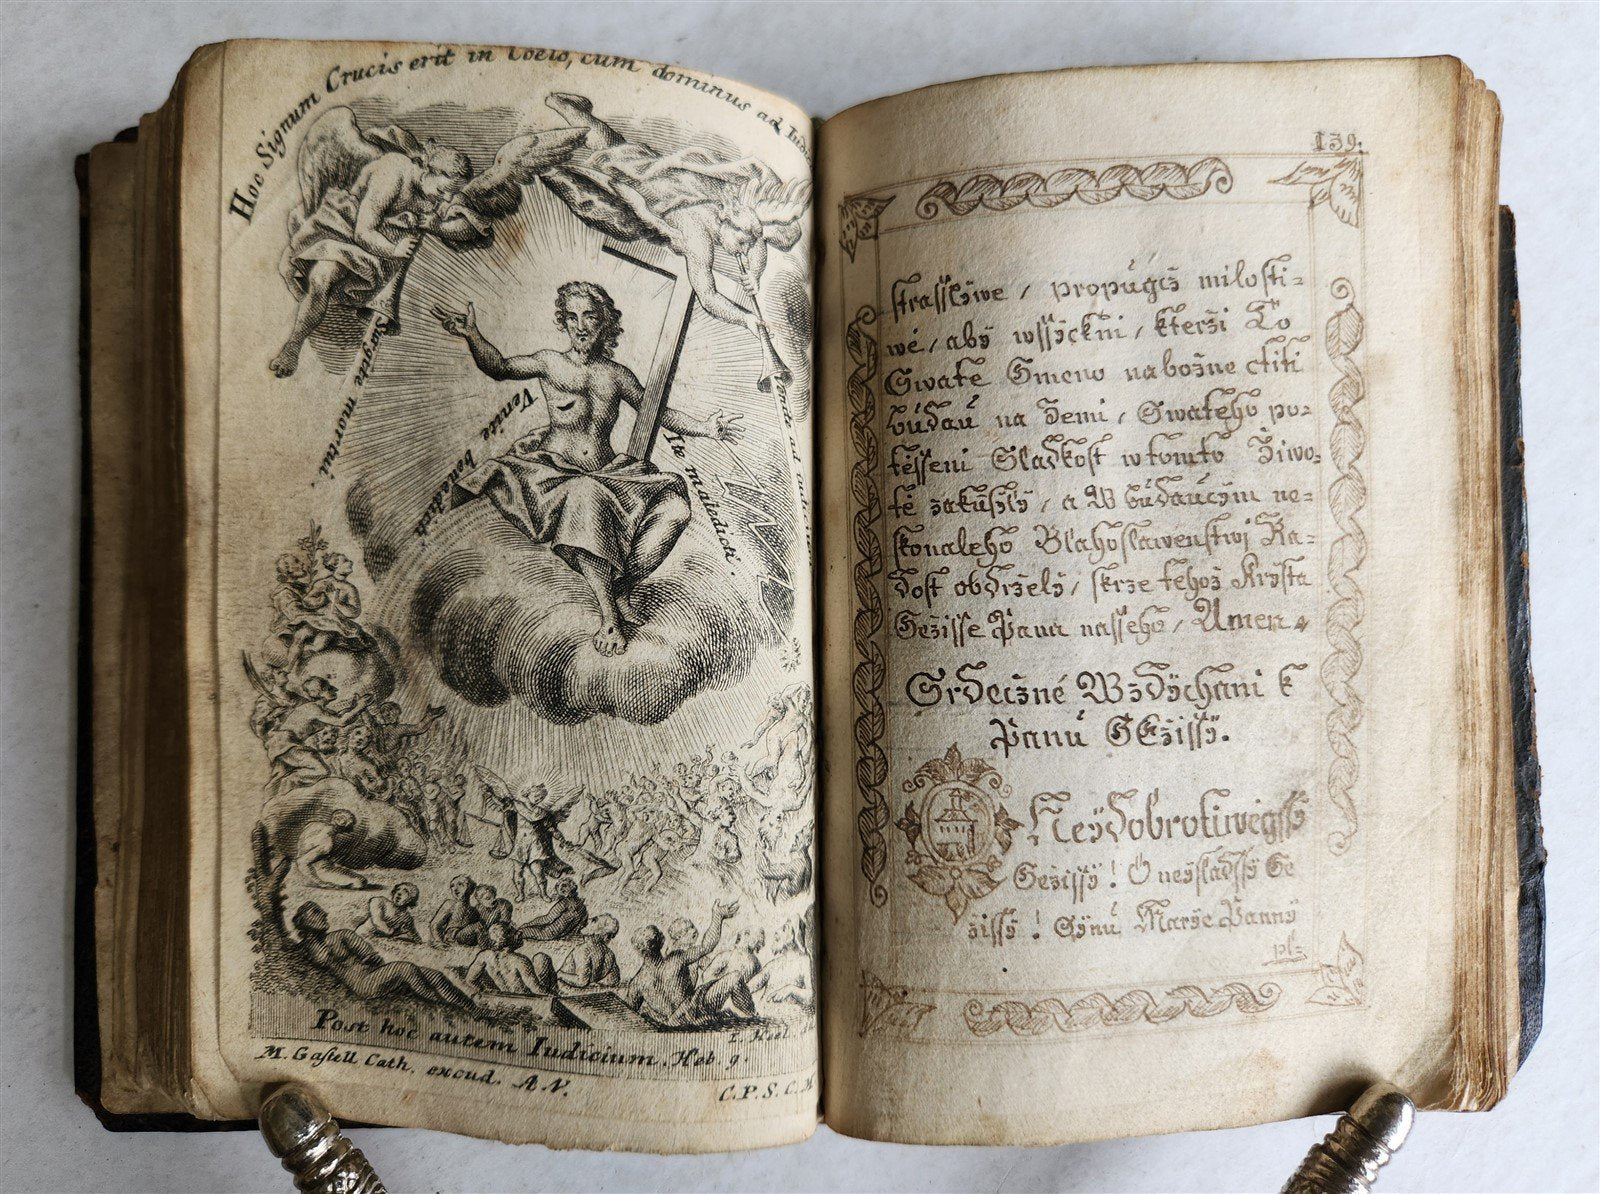 Hoc Signum Crucis erit in Coelo, cum dominus ad Iudi
Surgite mortui.
Venite benedicti
Ite maledicti.
Post hoc autem Iudicium. Heb. 9.
M. Gastell Cath. excud. A.V.
C.P.S.C.M
139.
strassliwe / propúgcž milosti=
wé / abÿ wssÿckni / kterži To
Swate Gmeno nabožne ctiti
búdaú na Zemi / Swateho po=
tėsseni Sladkost w tomto Žiwo=
tė zakúsÿlÿ / a W búdaúcÿm ne=
skonaleho Blahoslawenstwj Ra=
dost obdrželÿ / skrze tehož Krÿsta
Gežisse Pana nasseho / Amen
Srdečžné Wzdÿchani k
Panú GEžissÿ.
Neÿdobrotiwėgssÿ
Gežissÿ! O neÿsladssÿ Ge
žissÿ! Sÿnú Marÿe Pannÿ
pl=